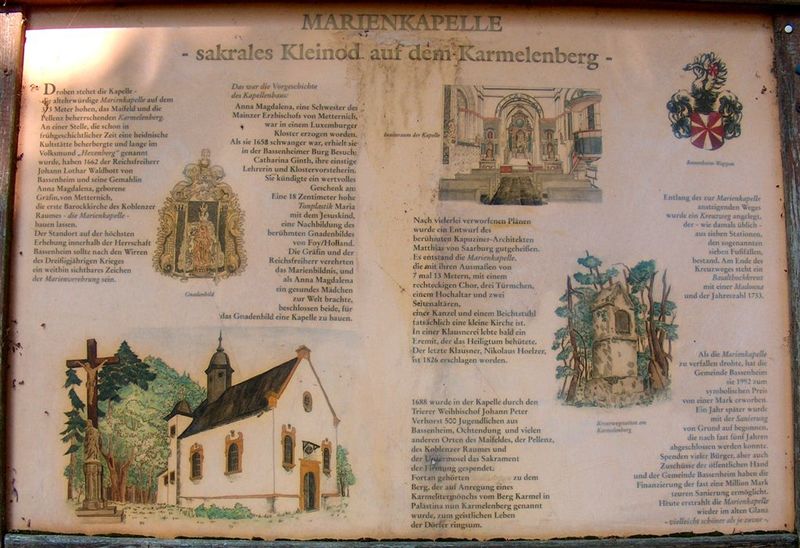 MARIENKAPELLE
- sakrales Kleinod auf dem Karmelenberg -
Droben stehet die Kapelle -
die altehrwürdige Marienkapelle auf dem
373 Meter hohen, das Maifeld und die
Pellenz beherrschenden Karmelenberg.
An einer Stelle, die schon in
frühgeschichtlicher Zeit eine heidnische
Kultstätte beherbergte und lange im
Volksmund „Hexenberg" genannt
wurde, haben 1662 der Reichsfreiherr
Johann Lothar Waldbott von
Bassenheim und seine Gemahlin
Anna Magdalena, geborene
Gräfin von Metternich,
die erste Barockkirche des Koblenzer
Raumes - die Marienkapelle -
bauen lassen.
Der Standort auf der höchsten
Erhebung innerhalb der Herrschaft
Bassenheim sollte nach den Wirren
des Dreißigjährigen Krieges
ein weithin sichtbares Zeichen
der Marienverehrung sein.
Das war die Vorgeschichte
des Kapellenbaus:
Anna Magdalena, eine Schwester des
Mainzer Erzbischofs von Metternich,
war in einem Luxemburger
Kloster erzogen worden.
Als sie 1658 schwanger war, erhielt sie
in der Bassenheimer Burg Besuch:
Catharina Ginth, ihre einstige
Lehrerin und Klostervorsteherin.
Sie kündigte ein wertvolles
Geschenk an:
Eine 18 Zentimeter hohe
Tonplastik Maria
mit dem Jesuskind,
eine Nachbildung des
berühmten Gnadenbildes
von Foy/Holland.
Die Gräfin und der
Reichsfreiherr verehrten
das Marienbildnis, und
als Anna Magdalena
ein gesundes Mädchen
zur Welt brachte,
beschlossen beide, für
das Gnadenbild eine Kapelle zu bauen.
Gnadenbild
Innenraum der Kapelle
Nach vielerlei verworfenen Plänen
wurde ein Entwurf des
berühmten Kapuziner-Architekten
Matthias von Saarburg gutgeheißen.
Es entstand die Marienkapelle,
die mit ihren Ausmaßen von
7 mal 13 Metern, mit einem
rechteckigen Chor, drei Türmchen,
einem Hochaltar und zwei
Seitenaltären,
einer Kanzel und einem Beichtstuhl
tatsächlich eine kleine Kirche ist.
In einer Klausnerei lebte bald ein
Eremit, der das Heiligtum behütete.
Der letzte Klausner, Nikolaus Hoelzer,
ist 1826 erschlagen worden.
1688 wurde in der Kapelle durch den
Trierer Weihbischof Johann Peter
Verhorst 500 Jugendlichen aus
Bassenheim, Ochtendung und vielen
anderen Orten des Maifeldes, der Pellenz,
des Koblenzer Raumes und
der Untermosel das Sakrament
der Firmung gespendet.
Fortan gehörten zu dem
Berg, der auf Anregung eines
Karmelitermönchs vom Berg Karmel in
Palästina nun Karmelenberg genannt
wurde, zum geistlichen Leben
der Dörfer ringsum.
Bassenheim-Wappen
Entlang des zur Marienkapelle
ansteigenden Weges
wurde ein Kreuzweg angelegt,
der - wie damals üblich -
aus sieben Stationen,
den sogenannten
sieben Fußfällen,
bestand. Am Ende des
Kreuzweges steht ein
Basalthochkreuz
mit einer Madonna
und der Jahreszahl 1733.
Kreuzwegstation am
Karmelenberg.
Als die Marienkapelle
zu verfallen drohte, hat die
Gemeinde Bassenheim
sie 1992 zum
symbolischen Preis
von einer Mark erworben.
Ein Jahr später wurde
mit der Sanierung
von Grund auf begonnen,
die nach fast fünf Jahren
abgeschlossen werden konnte.
Spenden vieler Bürger, aber auch
Zuschüsse der öffentlichen Hand
und der Gemeinde Bassenheim haben die
Finanzierung der fast eine Million Mark
teuren Sanierung ermöglicht.
Heute erstrahlt die Marienkapelle
wieder im alten Glanz
- vielleicht schöner als je zuvor -.